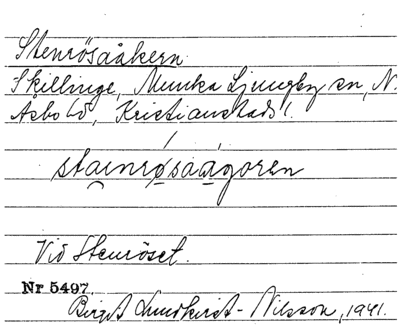 Stenrösaåkern
Skillinge, Munka Ljungby sn, N.
Åsbo hd, Kristianstads l.
stainrøsaågoren
Vid Stenröset.
Nr 5497.
Birgit Lundkvist-Nilsson, 1941.